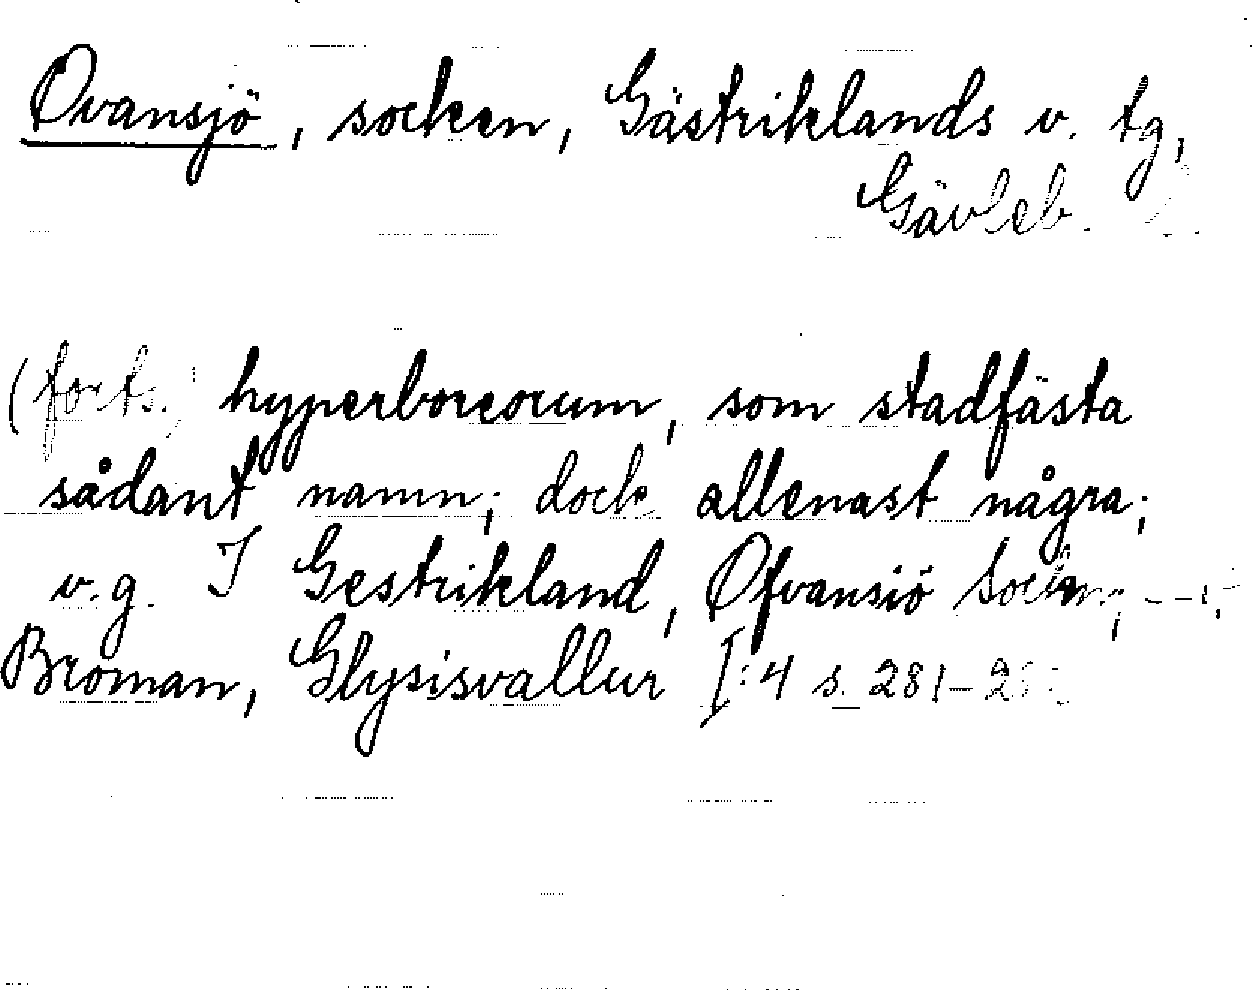 Ovansjö, socken, Gästriklands v. tg,
Gävleb.
(forts.) hyperboreorum, som stadfästa
sådant namn; dock allenast några;
v.g. I Gestrikland, Øfvansiö Sochn; ---
Broman, Glysisvallur I:4 s. 281-